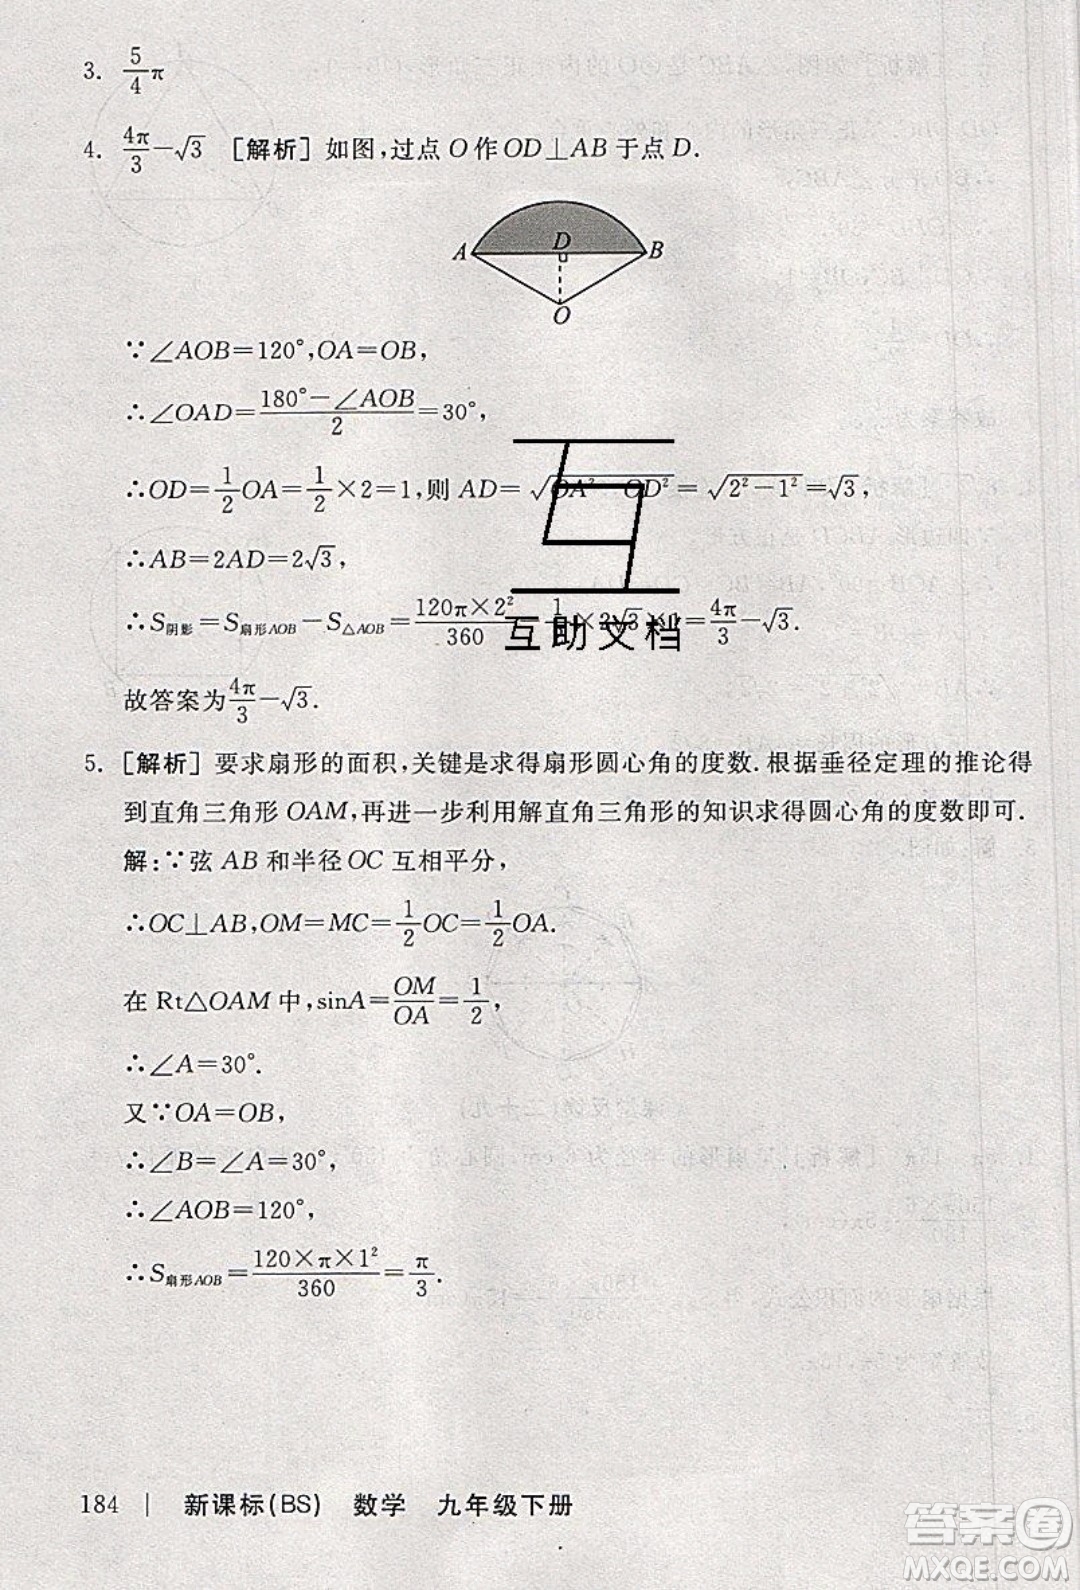 3. 5/4 π
4. 4π/3－√3 [解析] 如图,过点 O 作 OD⊥AB 于点 D.
A D B
O
∵∠AOB＝120°,OA＝OB,
∴∠OAD＝(180°－∠AOB)/2＝30°,
∴OD＝1/2 OA＝1/2×2＝1,则 AD＝√(OA²－OD²)＝√(2²－1²)＝√3,
∴AB＝2AD＝2√3,
∴S阴影＝S扇形AOB－S△AOB＝(120π×2²)/360－1/2×2√3×1＝4π/3－√3.
互助文档
故答案为 4π/3－√3.
5. [解析] 要求扇形的面积,关键是求得扇形圆心角的度数.根据垂径定理的推论得
到直角三角形 OAM,再进一步利用解直角三角形的知识求得圆心角的度数即可.
解:∵弦 AB 和半径 OC 互相平分,
∴OC⊥AB,OM＝MC＝1/2 OC＝1/2 OA.
在 Rt△OAM 中,sinA＝OM/OA＝1/2,
∴∠A＝30°.
又∵OA＝OB,
∴∠B＝∠A＝30°,
∴∠AOB＝120°,
∴S扇形AOB＝(120×π×1²)/360＝π/3.
184 | 新课标(BS) 数学 九年级下册
答案圈
MXQE.COM